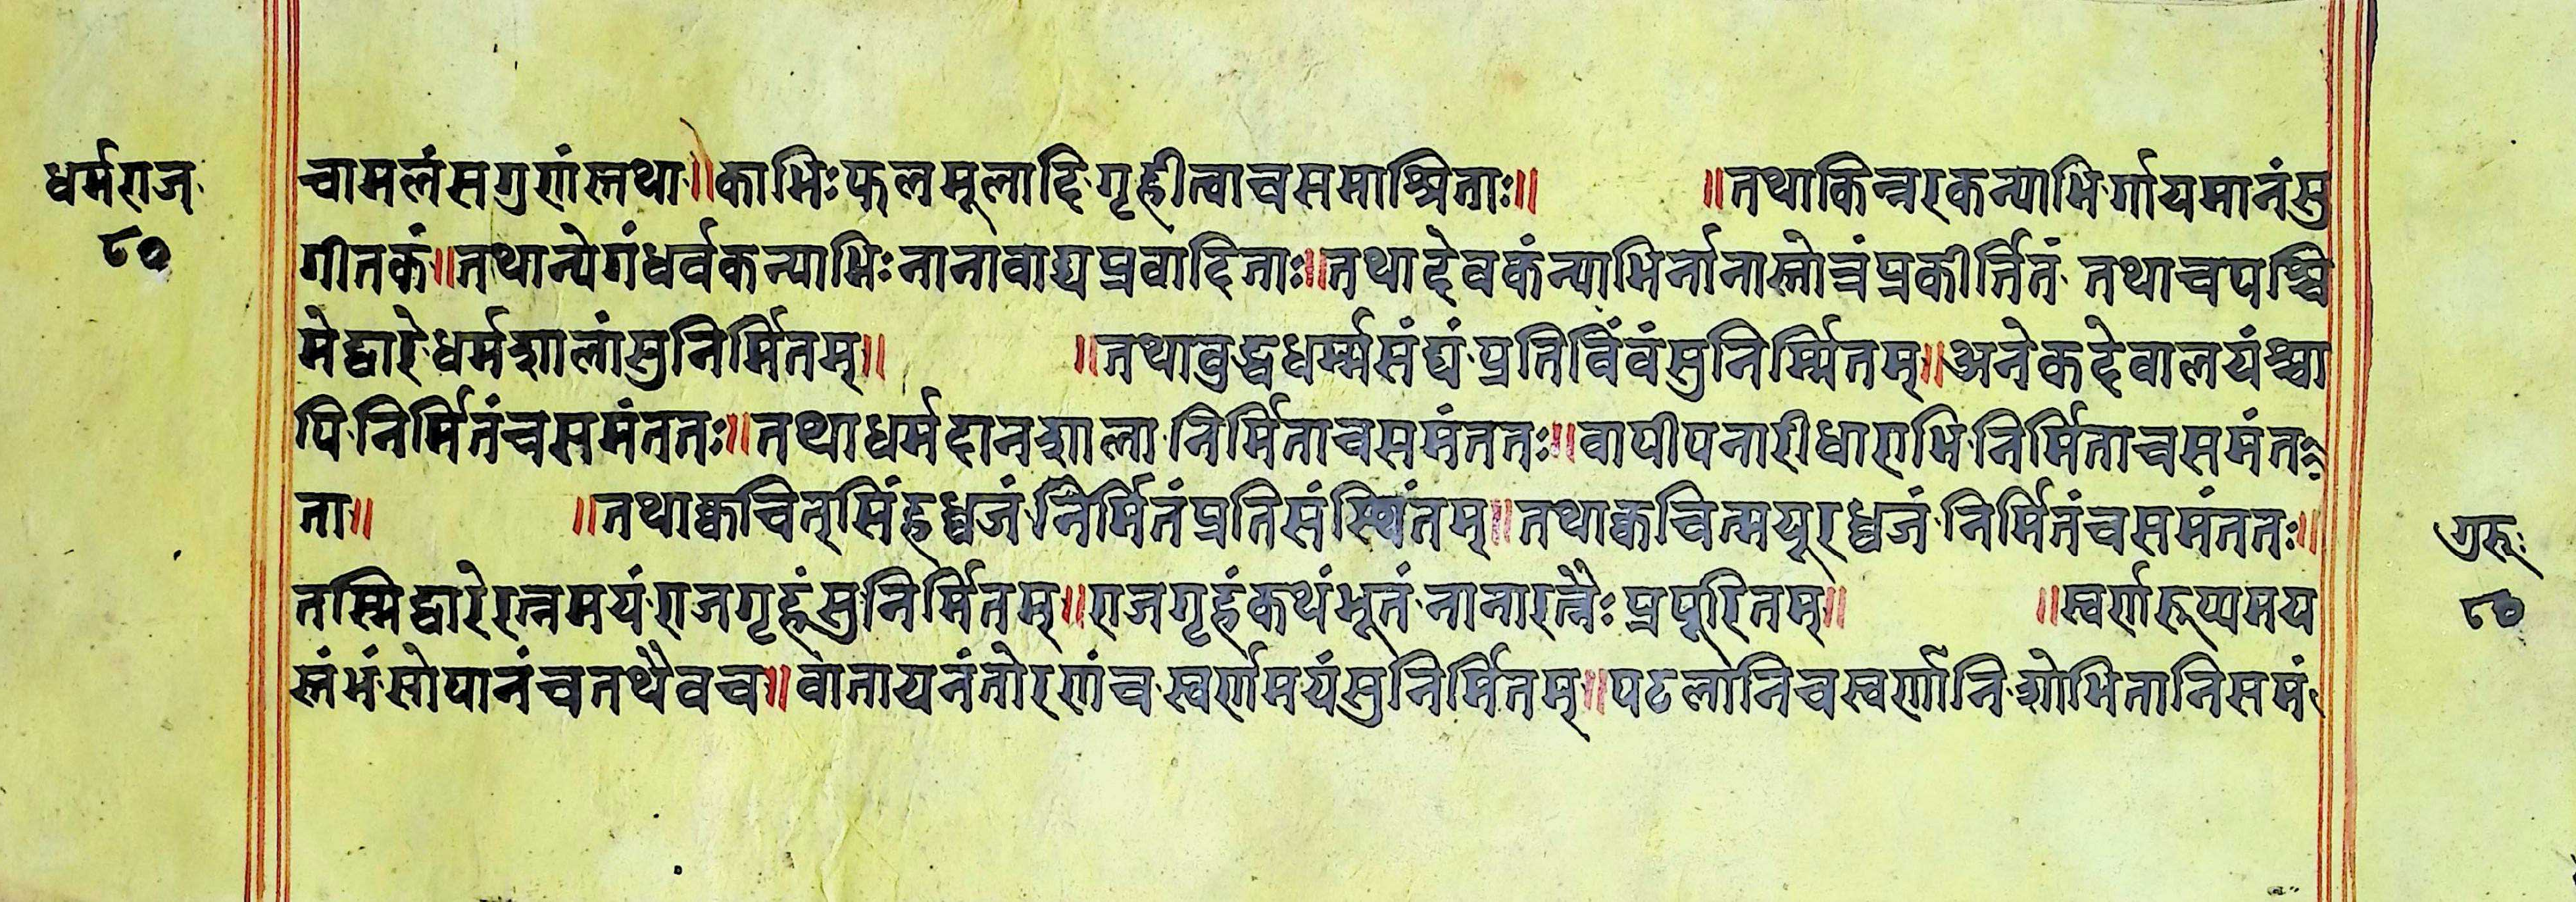 धर्मराज
८०
चामलंसगुणंस्तथा॥काभिःफलमूलादिगृहीत्वाचसमाश्रिताः॥ ॥तथाकिन्नरकन्याभिर्गायमानंसु
गीतकं॥तथान्येगंधर्वकन्याभिःनानावाद्यप्रवादिताः॥तथादेवकंन्याभिर्नानास्तोत्रंप्रकीर्त्तितं तथाचपश्चि
मेद्वारेधर्मशालांसुनिर्मितम्॥ ॥तथावुद्धधर्म्मसंघंप्रतिविंवंसुनिर्म्मितम्॥अनेकदेवालयंश्चा
पिनिर्मितंचसमंततः॥तथाधर्मदानशालानिर्मिताचसमंततः॥वापीपनारीधाराभिनिर्मिताचसमंत
ता॥ ॥तथाक्वचित्सिंहध्वजंनिर्मितंप्रतिसंस्थितम्॥तथाक्वचित्मयूरध्वजंनिर्मितंचसमंततः॥
तस्मिद्वारेरत्नमयंराजगृहंसुनिर्मितम्॥राजगृहंकथंभूतंनानारत्नैःप्रपूरितम्॥ ॥स्वर्णरूप्यमय
स्तंभंसोपानंचतथैवच॥वातायनंतोरणंचस्वर्णमयंसुनिर्मितम्॥पटलानिचस्वर्णानिशोभितानिसमं
गुरुः
८०